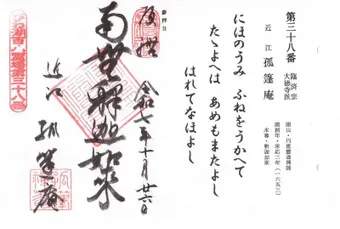 第三十八番
臨済宗
大徳寺派
近江 孤篷庵
にほのうみ ふねをうかへて
たゞよへは あめもまたよし
はれてなほよし
奉拝
令和七年十月廿六日
南無釋迦如来
近江 孤篷庵